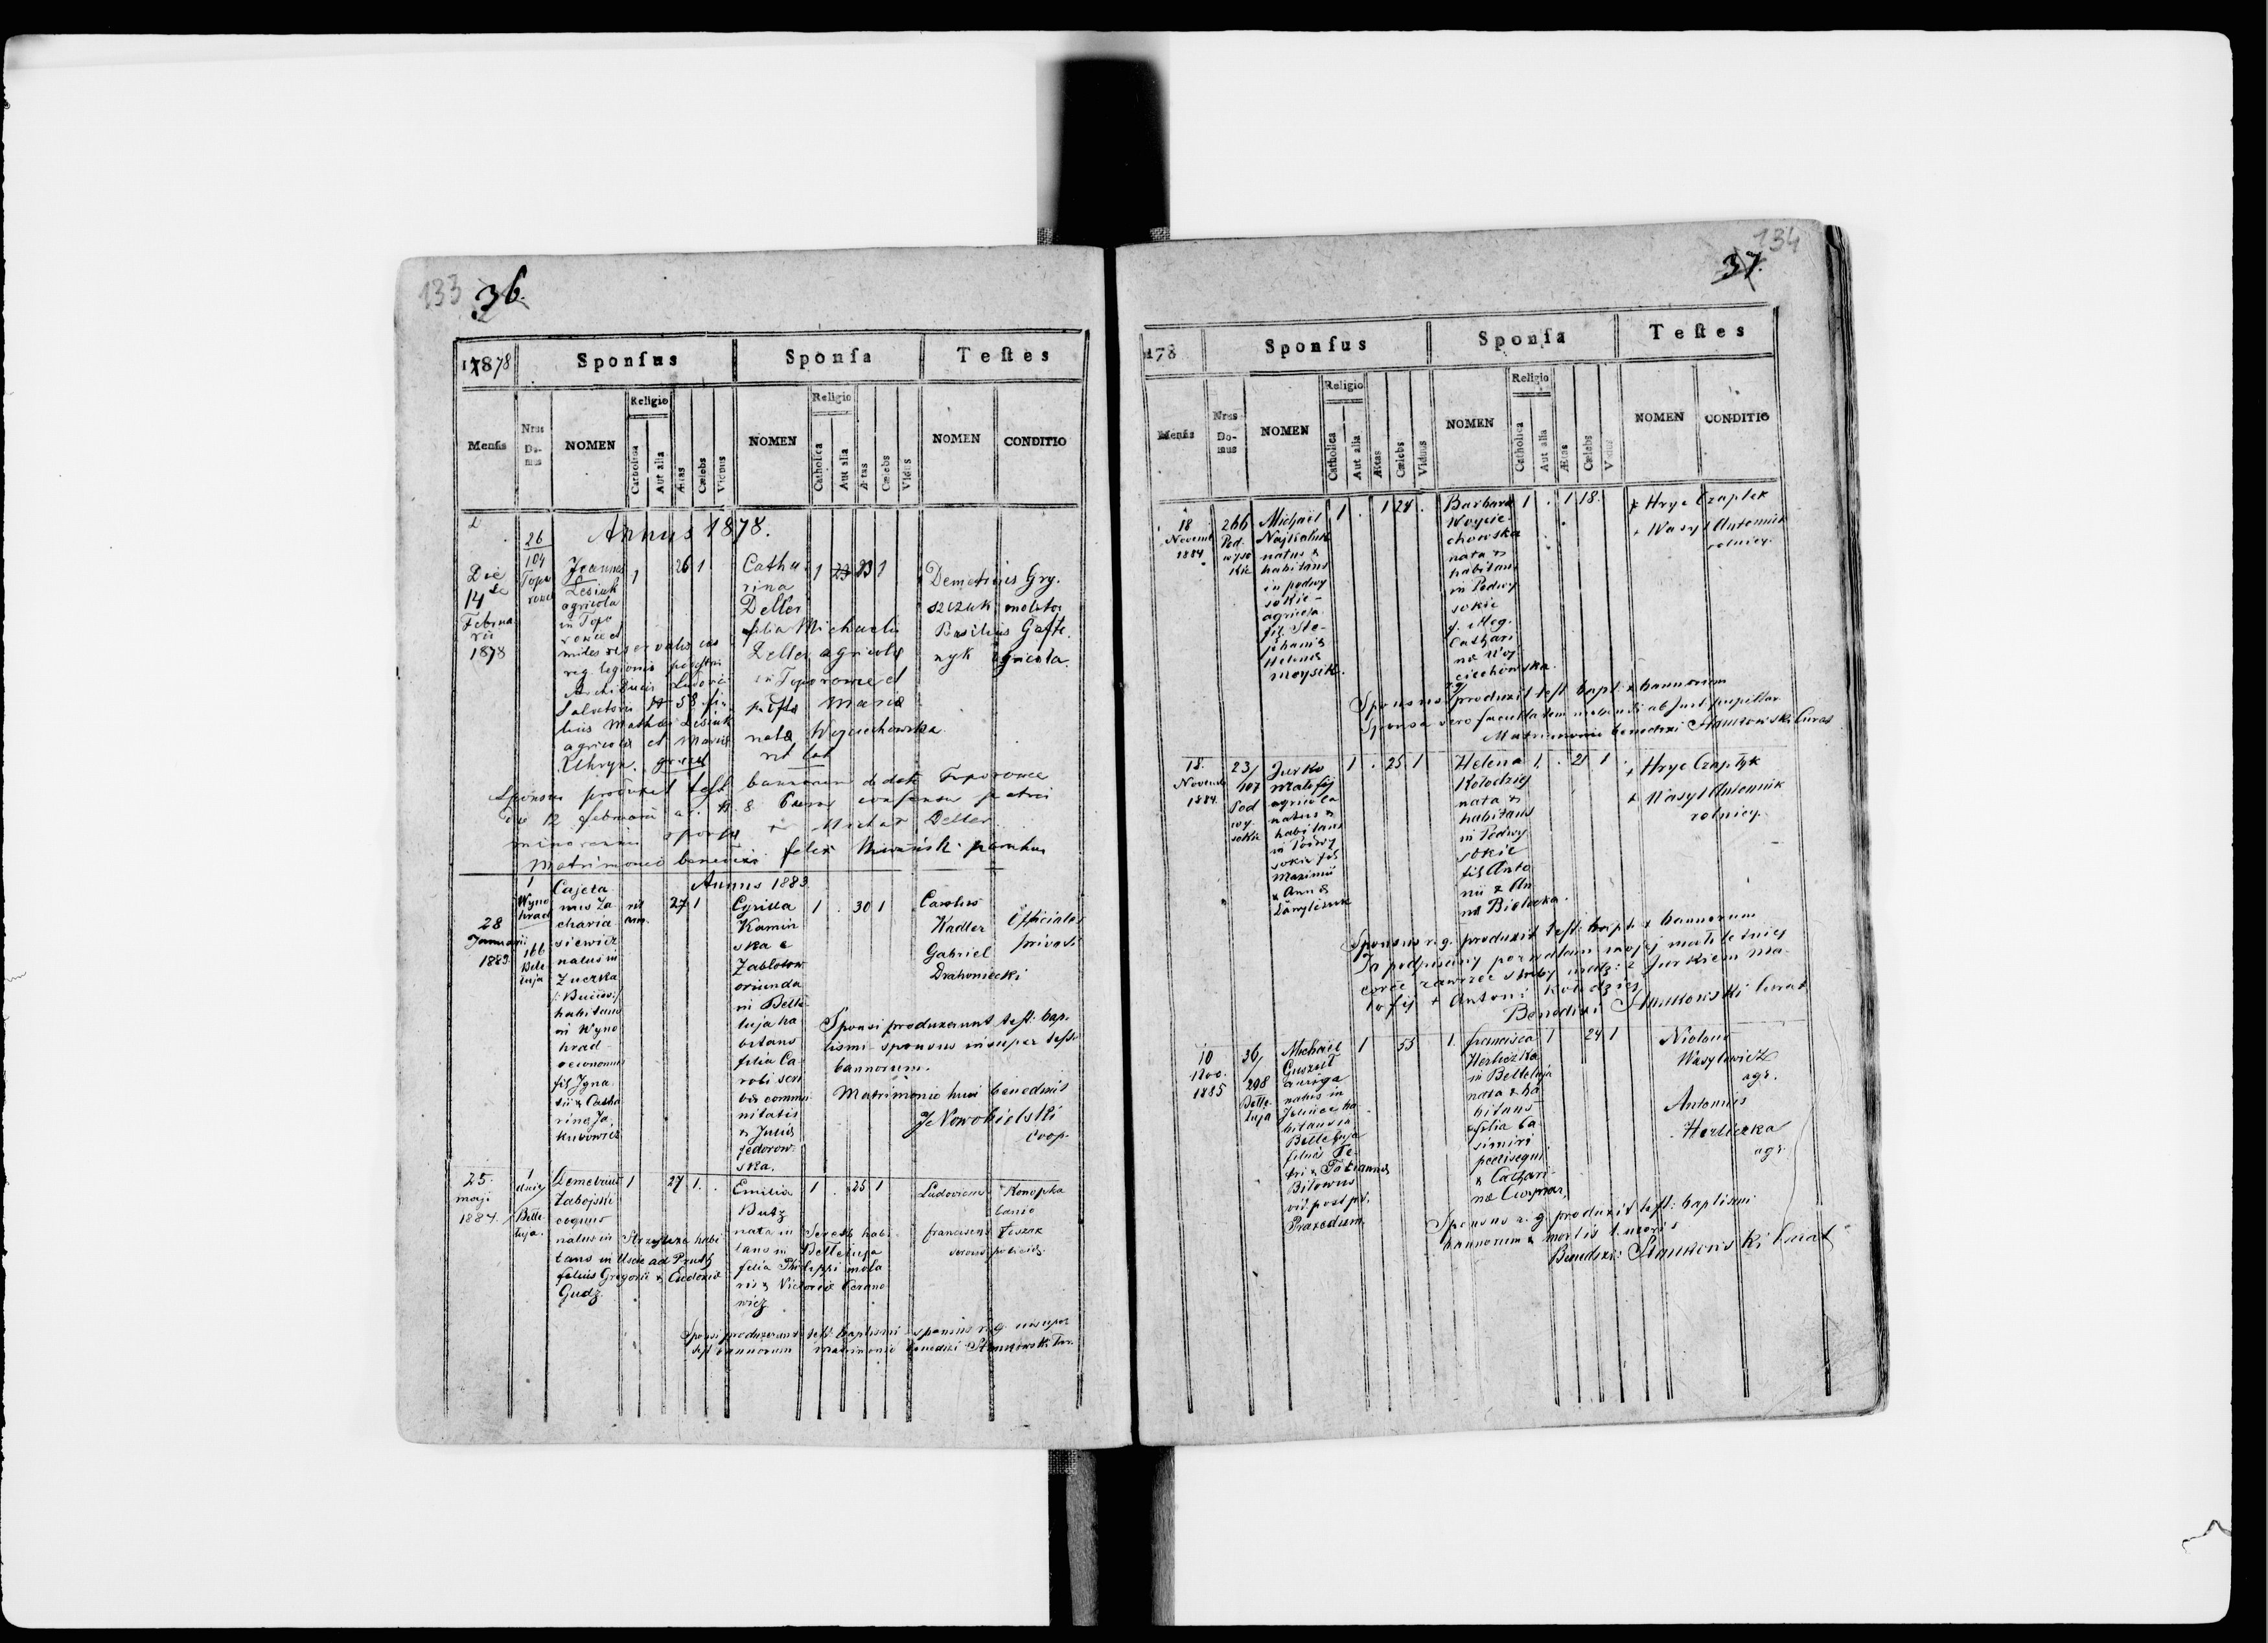 133 36.
17878
Sponsus Sponsa Testes
Religio Religio
Mensis Nrus Domus NOMEN Catholica Aut alia Ætas Cælebs Viduus NOMEN Catholica Aut alia Ætas Cælebs Vidua NOMEN CONDITIO
Annus 1878.
26
104
Topo
rouce
Die
14
Februa
rii
1878
Joannes
Lesiuk
agricola
in Topo
rouce et
miles reservatus cas
reg. legionis
Archiducis Ludovici
Salvatoris N 58 fi-
lius Mathei Lesiuk
agricola et Maria
1 26 1
Catha
rina
Deller
filia Michaelis
Deller agricola
in Toporouce et
Maria
nata Woyciechowska
rit lat
1 23 23 1
Demetrius Gry.
szczuk molitor
Basilius
nyk agricola.
Sponsus produxit test. bannorum de dato Toporouce
die 12 februarii a. c. N. 8
minorennis sponsa + Michał Deller
Matrimonio benedixi felix
Annus 1883.
28
Januarii
1883.
1
Wyno
hrad
166
Bele
łuja
Cajeta
nus Za
charia
siewicz
natus in
Zuczka
habitans
in Wyno
hrad
oeconomus
fil Igna
tii & Catha
rina Ja
kubowicz
rit
arm.
27 1
Cyrilla
Kamin
ska e
Zablotow
oriunda
in Bełe
łuja ha
bitans
filia Ca
roli scri
ba commu
nitatis
& Julia
fedorow
ska.
1 . 30 1
Carolus
Kadler
Gabriel
Drahoniecki
Officiales
privati
Sponsi produxerunt test: bap.
tismi sponsus insuper test.
bannorum.
Matrimonio huic benedixit
J Nowobielski
Coop.
25.
maji
1884.
1
Bełe
łuja.
Demetrius
Zabojski
coquus
natus in
tans in Uscie ad Pruth
filius Gregorii & Eudoxia
Gudz
1 27 1.
Emilia
Butz
nata in Sereth habi
tans in Bełełuja
filia Philippi mola
ris & Victoria
wicz
1 . 25 1
Ludovicus Konopka
lanio
franciscus
Sponsi produxerunt test. baptismi sponsus r. g. insuper
test bannorum matrimonio benedixi Stankowski Cur.
134
37.
178
Sponsus Sponsa Testes
Religio Religio
Mensis Nrus Domus NOMEN Catholica Aut alia Ætas Cælebs Viduus NOMEN Catholica Aut alia Ætas Cælebs Vidua NOMEN CONDITIO
18
Novemb
1884
266
Pod.
wyso
kie
Michaël
natus &
habitans
in podwy
sokie -
agricola
fil. Ste-
phani &
Helena
moysik.
1 . 1 24 .
Barbara
Woycie
chowska
nata &
habitans
in Podwy
sokie
f. illeg.
Cathari
na Woy
ciechowska.
1 . 1 18.
+ Hryc Czaplek
+ Wasyl Antoniuk
rolnicy.
Sponsus r.g. produxit test. bapt. & bannorum
Sponsa vero facultatem nubendi ab Jud. pupillar
Matrimonio benedixi Stankowski Curat
18.
Novemb
1884.
23/
107
Pod
wy.
sokie
Jurko
Matofij
agricola
natus &
habitans
in Podwy
sokie fil
Maximi
& Anna
1 . 25 1
Helena
Kołodziej
nata &
habitans
in Podwy
sokie
fil Anto
nii & An
na Bielecka.
1. . 21 1
+ Hryc Czaplyk
+ Wasyl Antoniuk
rolnicy.
Sponsus r.g. produxit test: bapt: & bannorum
Ja podpisany pozwalam mojej małoletniej
córce zawrzeć śluby małż: z Jurkiem Ma-
tofij + Antoni Kołodziej
Benedixi Stankowski Curat
10
Nov.
1885
36/
298
Bełe
łuja
Michaël
auriga
natus in
habitans in
Bełełuja
filius Pe
tri & Tatianna
Bilowus
vid. post pt.
Praxedum.
1 55 1.
francisca
Herliczka
in Bełełuja
nata & ha
bitans
filia Ca
simiri
pedisequi
& Cathari-
na
1 24 1
Nicolaus
Wasylowicz
agr.
Antonius
Herliczka
agr.
Sponsus r. g. produxit test: baptismi
bannorum & mortis 1. uxoris
Benedixi: Stankowski Curat